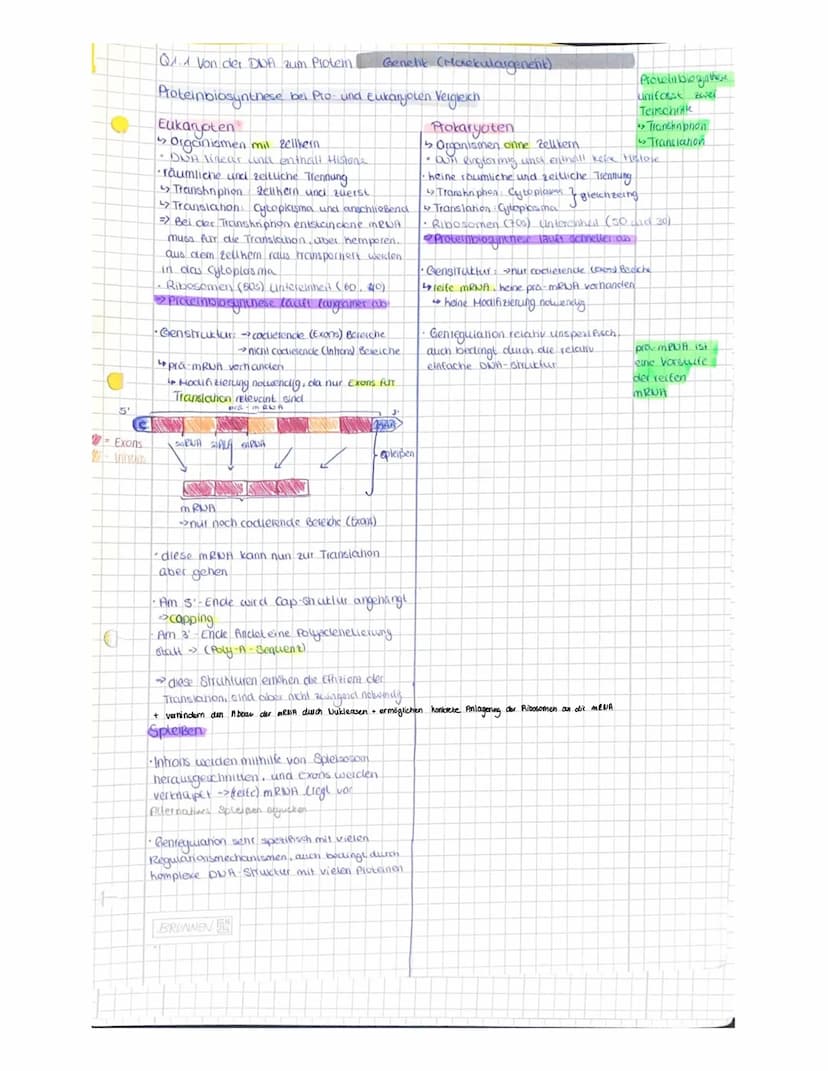 Q1.1 Von der DNA zum Protein Genetik (Molekulargenetik)
Proteinbiosynthese bei Pro- und Eukaryoten Vergleich
Proteinbiosynthese
umfasst zwei
Teilschritte
↳ Transkription
↳ Translation
Eukaryoten
↳ Organismen mit Zellkern
• DNA linear und enthält Histone
• räumliche und zeitliche Trennung
↳ Transkription: Zellkern und zuerst
↳ Translation: Cytoplasma und anschließend
=> Bei der Transkription entstandene mRNA
muss für die Translation, aber
aus dem Zellkern raus transportiert werden
in das Cytoplasma
• Ribosomen (80S) Untereinheit (60, 40)
=> Proteinbiosynthese läuft langsamer ab
• Genstruktur: → codierende (Exons) Bereiche
→ nicht codierende (Introns) Bereiche
↳ prä-mRNA vorhanden
↳ Modifizierung notwendig, da nur Exons für
Translation relevant sind
prä-mRNA
5' 3'
C AAA
= Exons
= Introns
snRNA snRNA snRNA
Spleißen
mRNA
→ nur noch codierende Bereiche (Exons)
• diese mRNA kann nun zur Translation
über gehen
• Am 5'-Ende wird Cap-Struktur angehängt
→ capping
• Am 3'-Ende findet eine Polyadenelierung
statt → (Poly-A-Sequenz)
→ diese Strukturen erhöhen die Effizient der
Translation, sind aber nicht zwingend notwendig
+ verhindern den Abbau der mRNA durch Nukleasen + ermöglichen korrekte Anlagerung der Ribosomen an die mRNA
Spleißen
• Introns werden mithilfe von Spleisosom
herausgeschnitten, und Exons werden
verknüpft → (reife) mRNA liegt vor
Alternatives Spleißen
• Genregulation sehr spezifisch mit vielen
Regulationsmechanismen, auch bedingt durch
komplexe DNA-Struktur mit vielen Proteinen
BRUNNEN
Prokaryoten
↳ Organismen ohne Zellkern
• DNA Ringförmig und enthält keine Histone
• keine räumliche und zeitliche Trennung
↳ Transkription: Cytoplasma } gleichzeitig
↳ Translation: Cytoplasma
• Ribosomen (70S) Untereinheit (50 und 30)
=> Proteinbiosynthese läuft schneller ab
• Genstruktur: → nur codierende (Exons) Bereiche
↳ reife mRNA, keine prä-mRNA vorhanden
↳ keine Modifizierung notwendig
• Genregulation relativ unspezifisch,
auch bedingt durch die relativ
einfache DNA-Struktur
prä-mRNA ist
eine Vorstufe
der reifen
mRNA